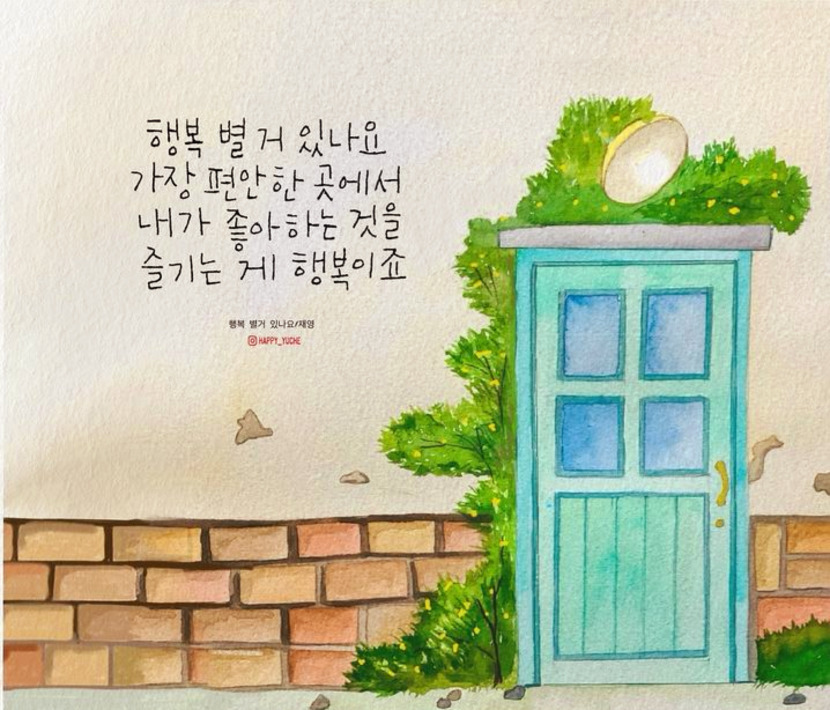 행복 별 거 있나요
가장 편안한 곳에서
내가 좋아하는 것을
즐기는 게 행복이죠
행복 별거 있나요/재영
HAPPY_YUCHE